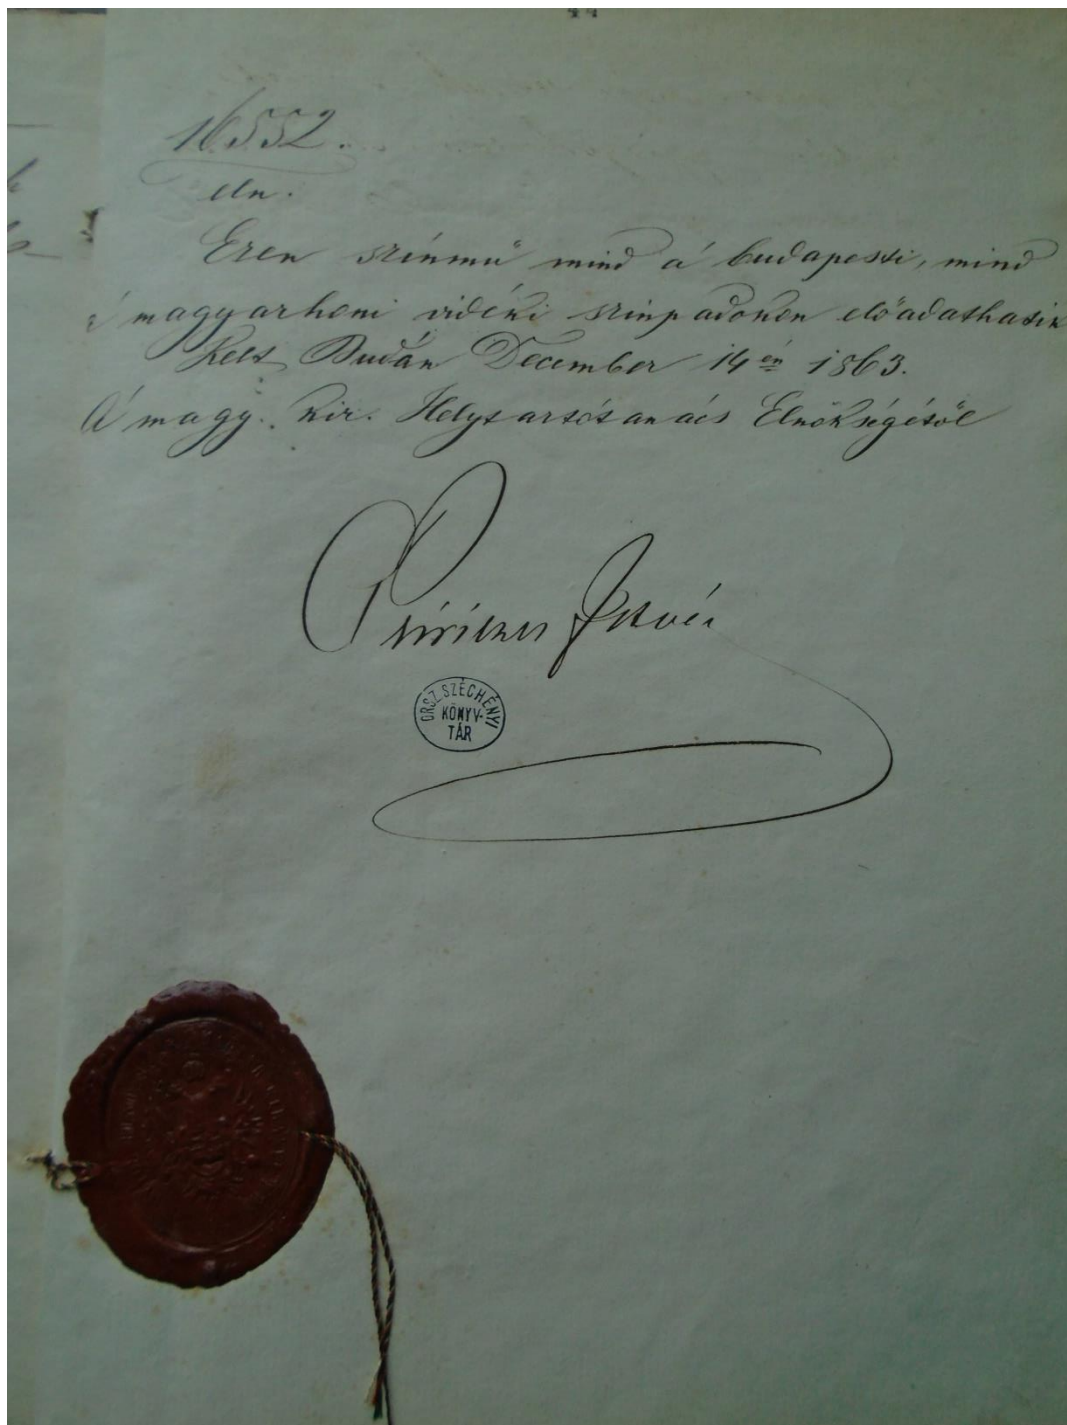 44
16552.
eln.
Ezen színmű mind a' budapesti, mind
a' magyarhoni vidéki szinpadokon előadathatik
Kelt Budán December 14én 1863.
A' magy. kir. Helytartótanács Elnökségétől
István
ORSZ. SZÉCHÉNYI
KÖNYV-
TÁR